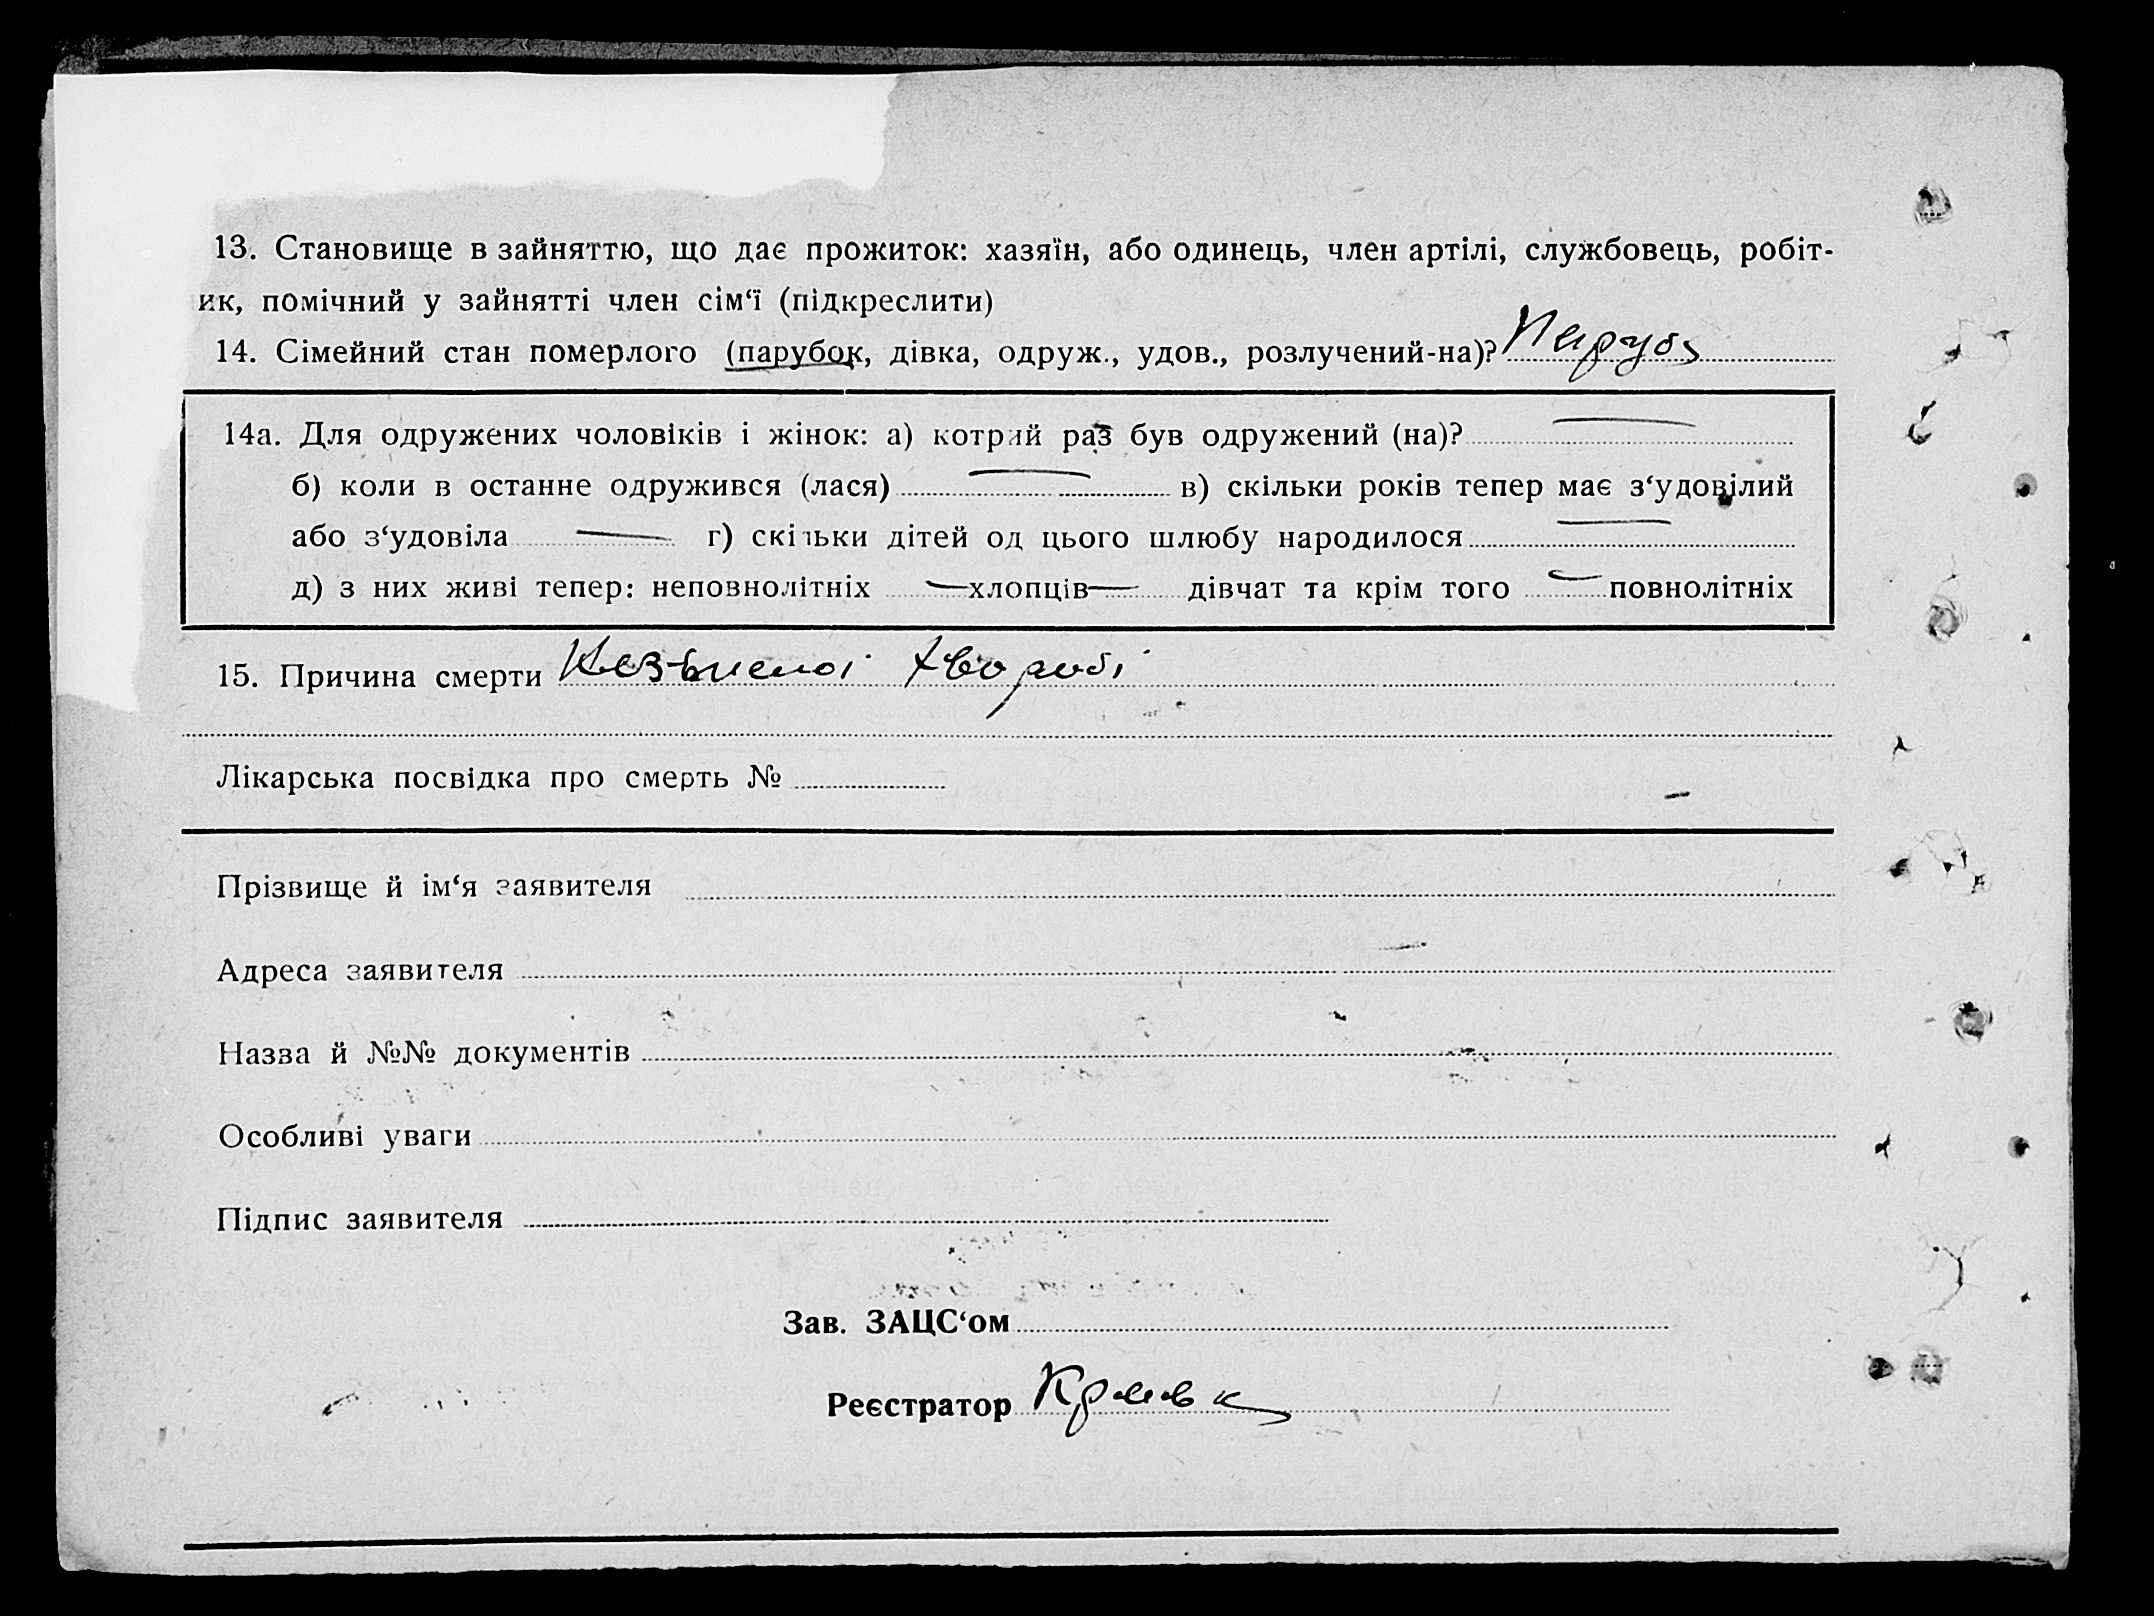 13. Становище в зайняттю, що дає прожиток: хазяїн, або одинець, член артілі, службовець, робіт-
ик, помічний у зайнятті член сім‘ї (підкреслити)
14. Сімейний стан померлого (парубок, дівка, одруж., удов., розлучений-на)? Паруб
14а. Для одружених чоловіків і жінок: а) котрий раз був одружений (на)? —
б) коли в останне одружився (лася) — в) скільки років тепер має з‘удовілий
або з‘удовіла — г) скільки дітей од цього шлюбу народилося —
д) з них живі тепер: неповнолітніх — хлопців — дівчат та крім того — повнолітніх
15. Причина смерти хвороби
Лікарська посвідка про смерть №
Прізвище й ім‘я заявителя
Адреса заявителя
Назва й №№ документів
Особливі уваги
Підпис заявителя
Зав. ЗАЦС‘ом
Реєстратор